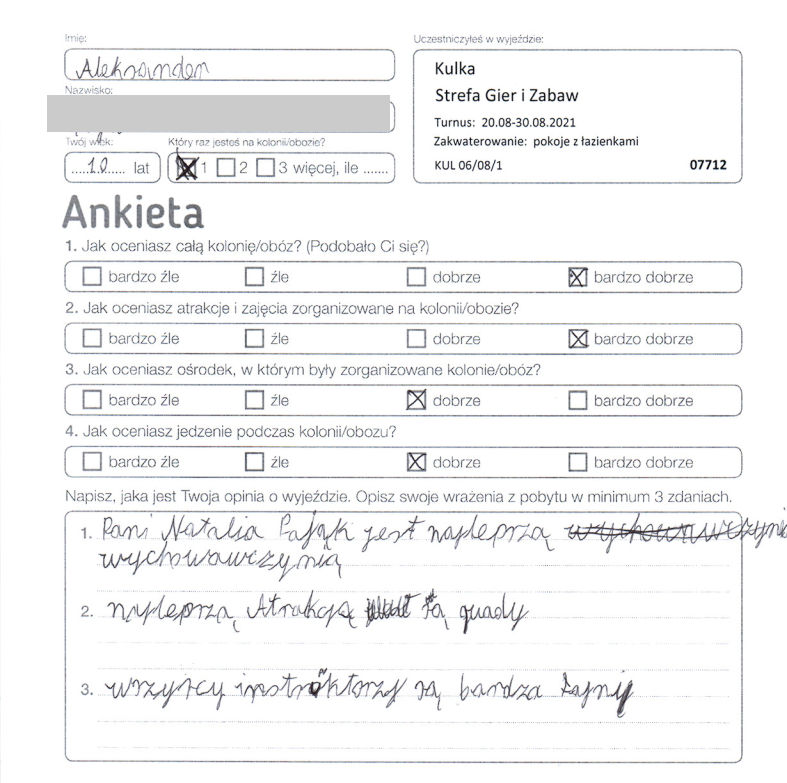 Imię:
Aleksander
Nazwisko:
Twój wiek:
Który raz jesteś na kolonii/obozie?
.....10..... lat
1 2 3 więcej, ile .......
Uczestniczyłeś w wyjeździe:
Kulka
Strefa Gier i Zabaw
Turnus: 20.08-30.08.2021
Zakwaterowanie: pokoje z łazienkami
KUL 06/08/1 07712
Ankieta
1. Jak oceniasz całą kolonię/obóz? (Podobało Ci się?)
bardzo źle źle dobrze bardzo dobrze
2. Jak oceniasz atrakcje i zajęcia zorganizowane na kolonii/obozie?
bardzo źle źle dobrze bardzo dobrze
3. Jak oceniasz ośrodek, w którym były zorganizowane kolonie/obóz?
bardzo źle źle dobrze bardzo dobrze
4. Jak oceniasz jedzenie podczas kolonii/obozu?
bardzo źle źle dobrze bardzo dobrze
Napisz, jaka jest Twoja opinia o wyjeździe. Opisz swoje wrażenia z pobytu w minimum 3 zdaniach.
1. Pani Natalia Pająk jest najleprzą
wychowawczynią
2. najleprzą Atrakcją są quady
3. wrzyscy instróktorzy są bardza fajni